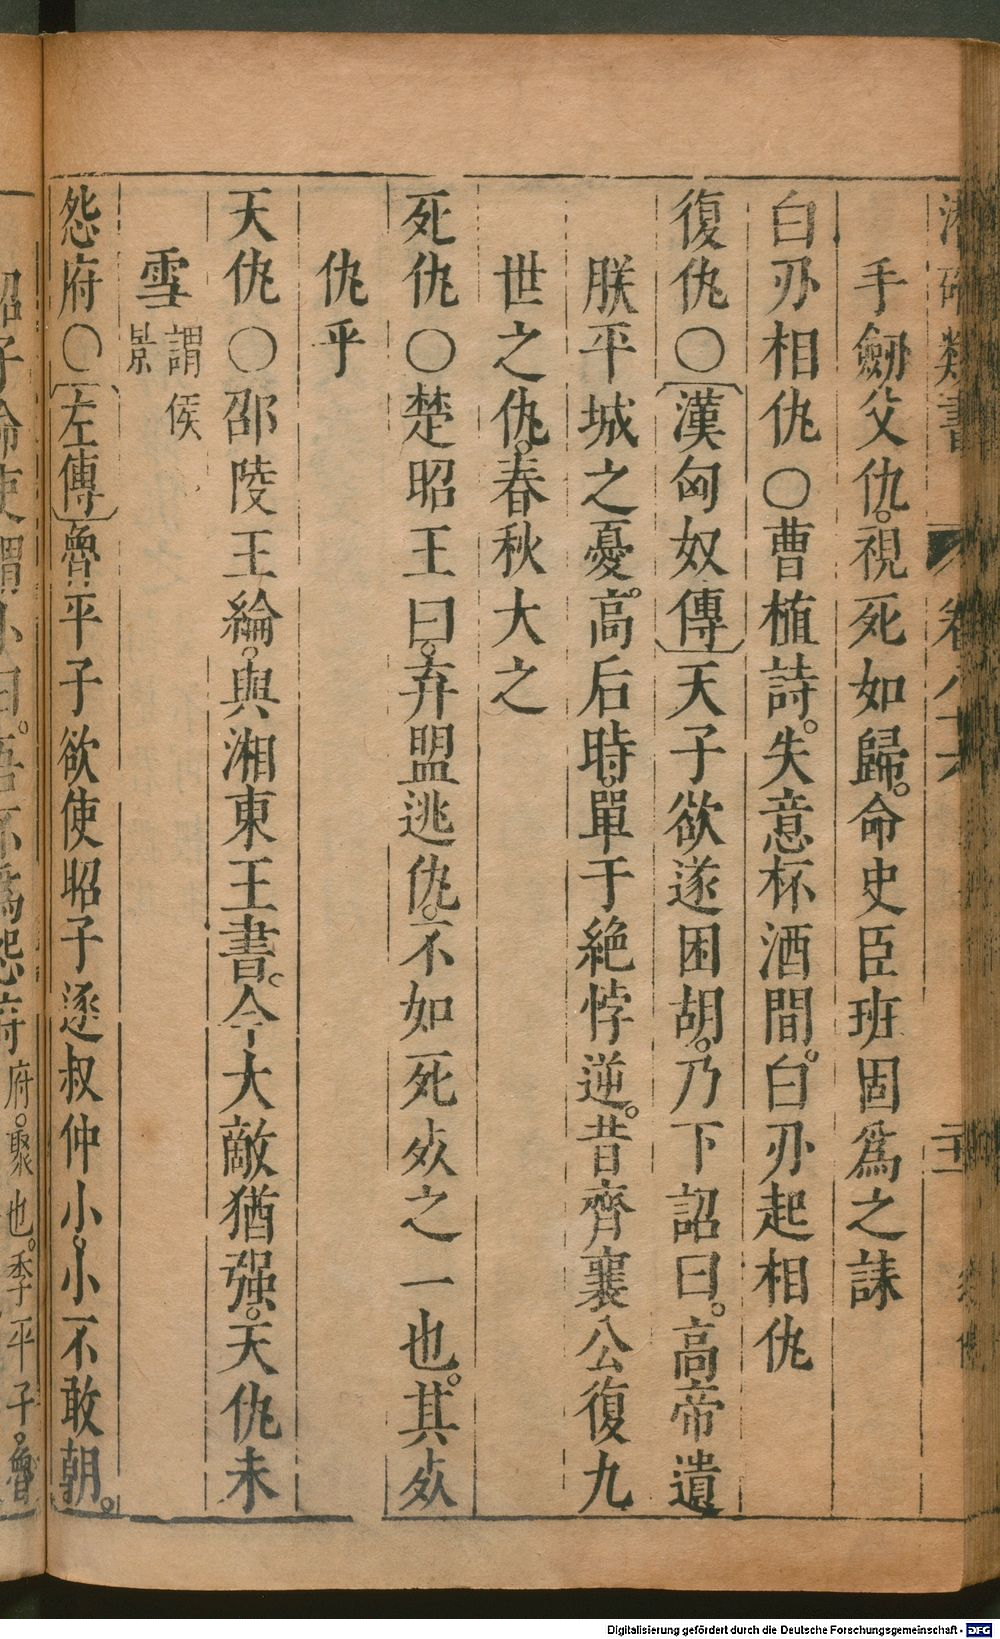 潛確類書 卷八六
手劒父仇。視死如歸。命史臣班固爲之誄
白刃相仇〇曹植詩。失意杯酒間。白刃起相仇
復仇〇〔漢匈奴傳〕天子欲遂困胡。乃下詔曰。高帝遺
朕平城之憂。高后時。單于絶悖逆。昔齊襄公復九
世之仇。春秋大之
死仇〇楚昭王曰。弃盟逃仇。不如死。死之一也。其死
仇乎
天仇〇邵陵王綸。與湘東王書。今大敵猶强。天仇未
雪 謂侯
景
怨府〇〔左傳〕魯平子欲使昭子逐叔仲小。小不敢朝。
昭子命吏謂小曰。吾不爲怨府 府。聚也。季平子。魯
Digitalisierung gefördert durch die Deutsche Forschungsgemeinschaft - DFG